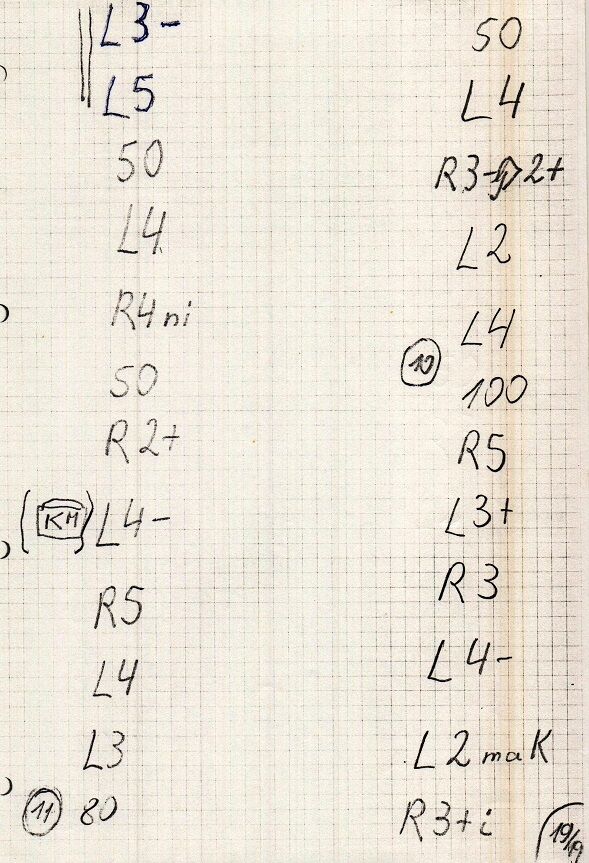 L3-
L5
50
L4
R4ni
50
R2+
(KM) L4-
R5
L4
L3
11 80
50
L4
R3-> 2+
L2
L4
10
100
R5
L3+
R3
L4-
L2 maK
R3+i
19/19